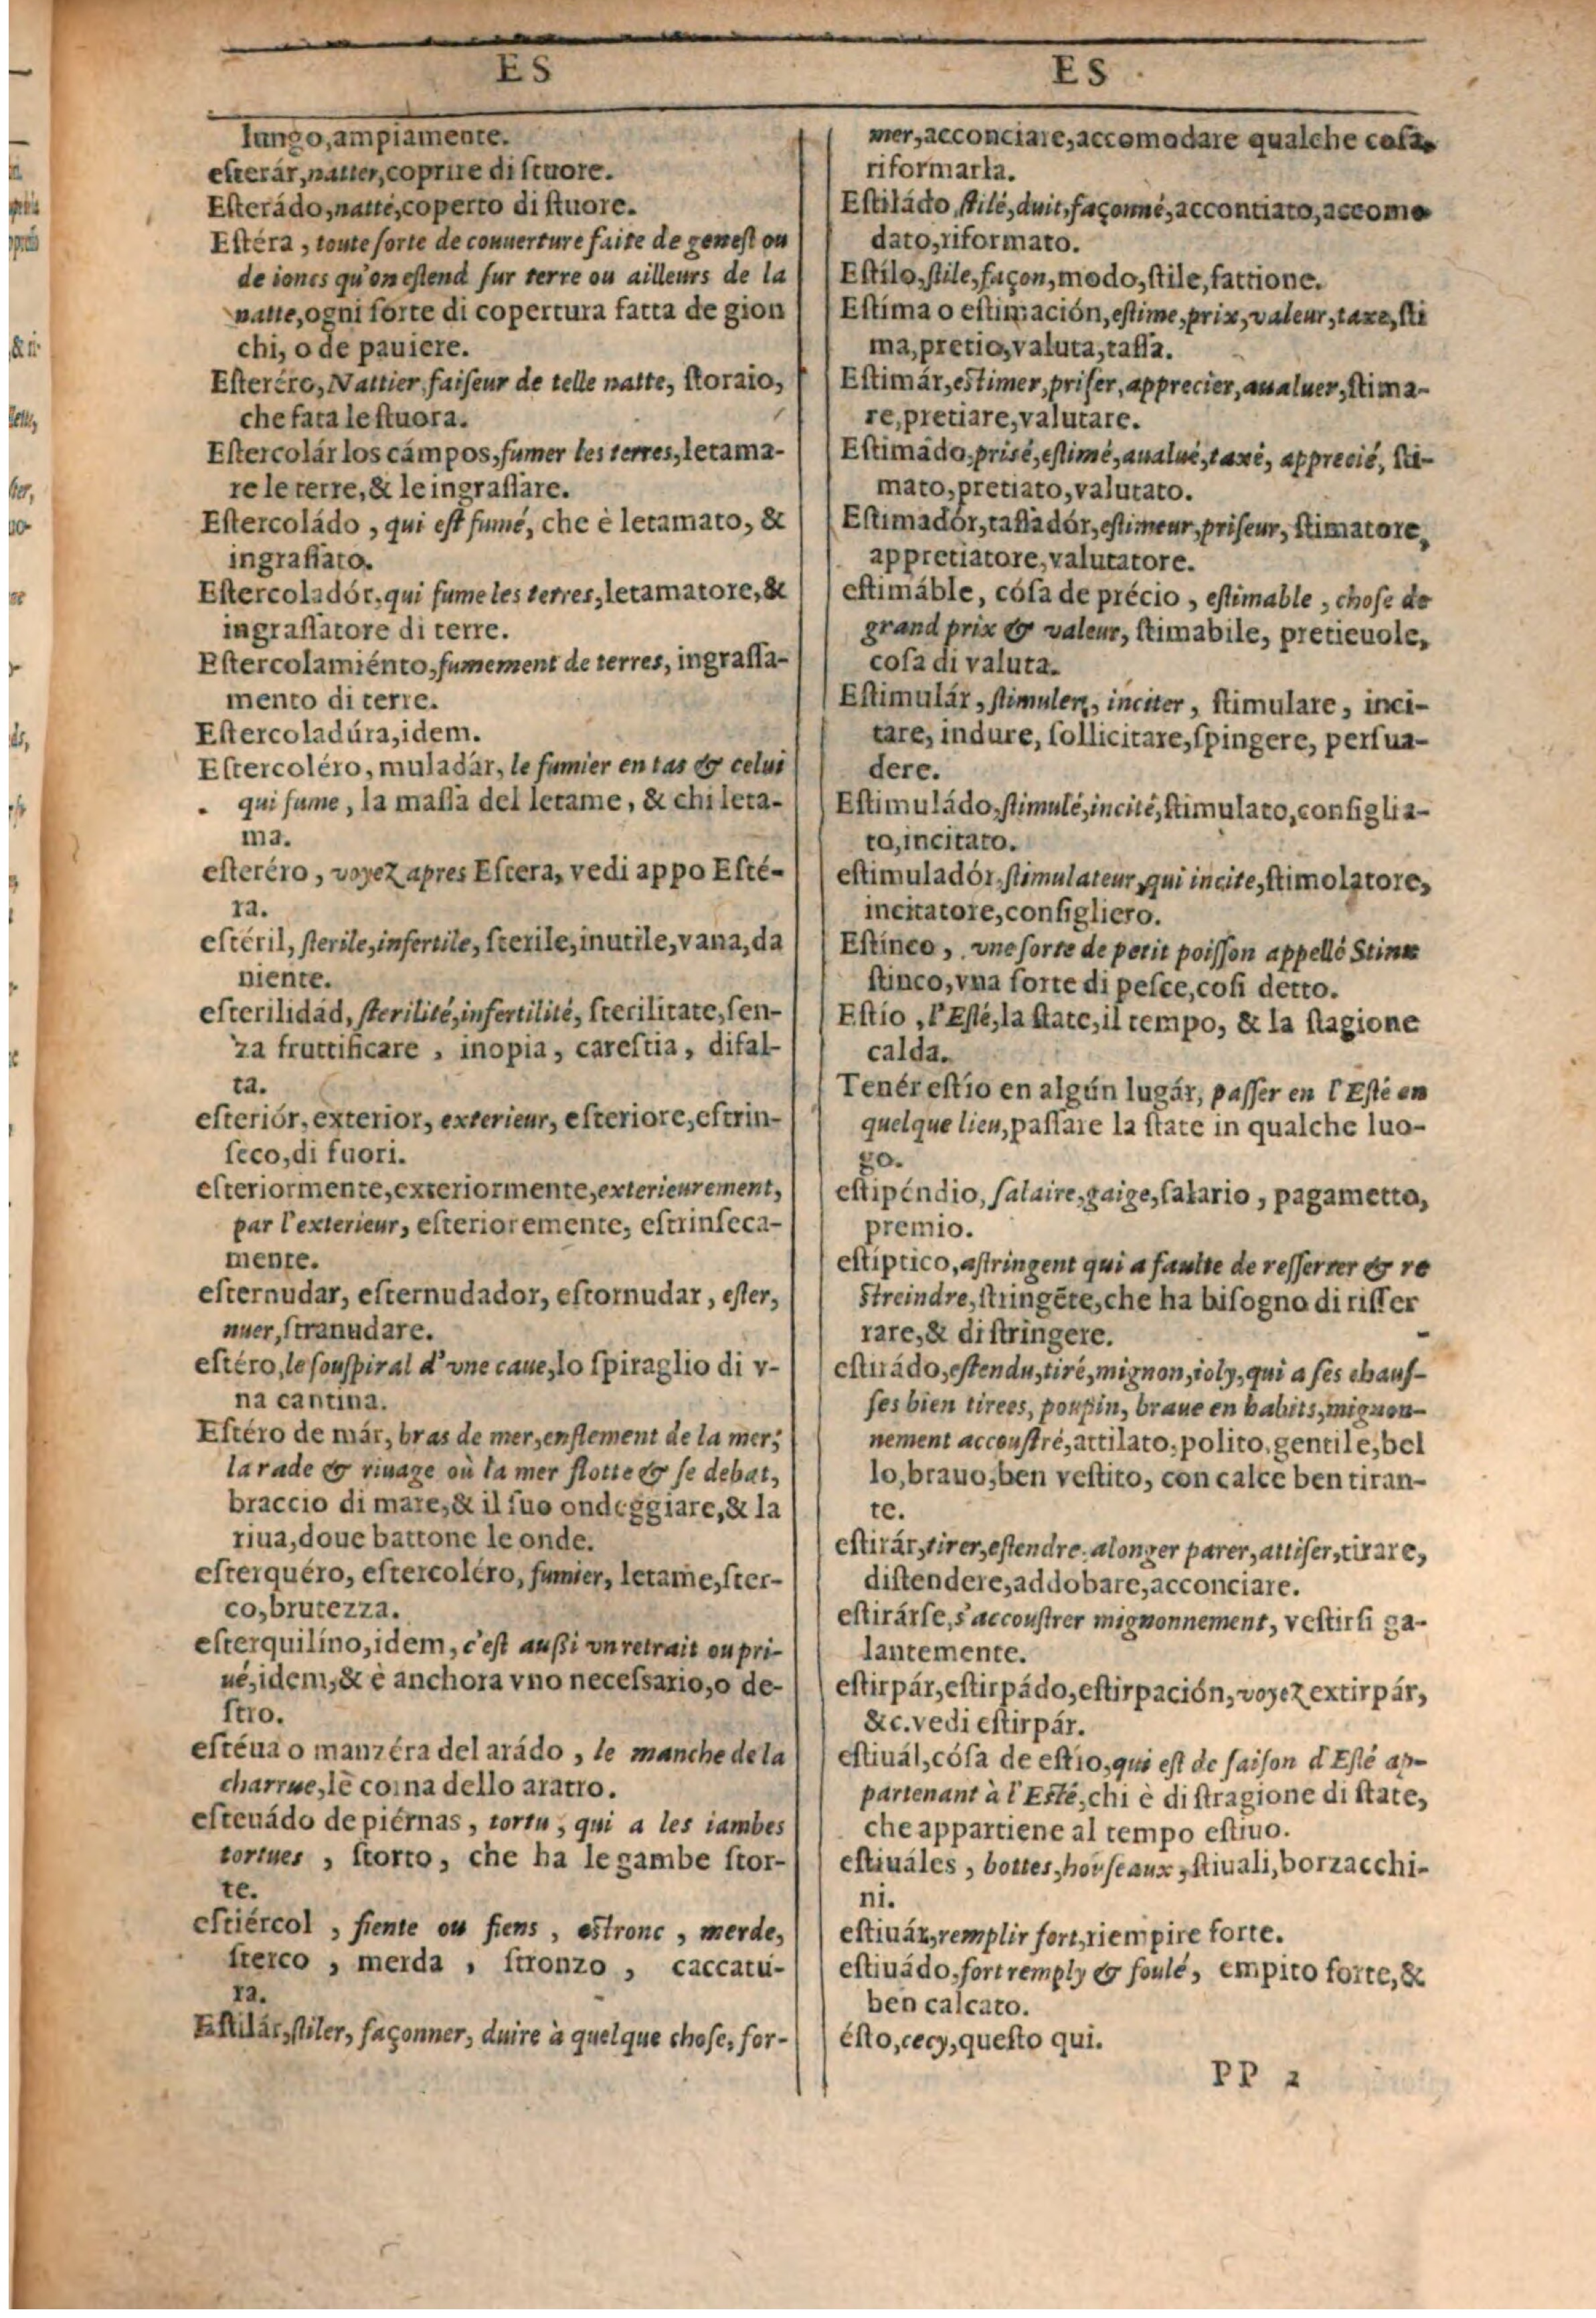 ES
lungo,ampiamente.
eſterár,natter,coprire di ſtuore.
Eſterádo,natté,coperto di ſtuore.
Eſtéra, toute ſorte de couuerture faite de geneſt ou
de ioncs qu'on eſtend ſur terre ou ailleurs de la
natte,ogni ſorte di copertura fatta de gion
chi, o de pauiere.
Eſteréro, Nattier, faiſeur de telle natte, ſtoraio,
che fara le ſtuora.
Eſtercolár los cámpos,fumer les terres,letama-
re le terre,& le ingraſſare.
Eſtercoládo, qui eſt fumé, che è letamato, &
ingraſſato.
Eſtercoladór,qui fume les terres,letamatore,&
ingraſſatore di terre.
Eſtercolamiénto,fumement de terres, ingraſſa-
mento di terre.
Eſtercoladúra,idem.
Eſtercoléro, muladár, le fumier en tas & celui
qui fume, la maſſa del letame, & chi leta-
ma.
eſteréro, voyez apres Eſtera, vedi appo Eſté-
ra.
eſtéril, ſterile,infertile, ſterile,inutile,vana,da
niente.
eſterilidád, ſterilité,infertilité, ſterilitate,ſen-
za fruttificare, inopia, careſtia, difal-
ta.
eſteriór, exterior, exterieur, eſteriore,eſtrin-
ſeco,di fuori.
eſteriormente,exteriormente,exterieurement,
par l'exterieur, eſterioremente, eſtrinſeca-
mente.
eſternudar, eſternudador, eſtornudar, eſter,
nuer,ſtranudare.
eſtéro,le ſouſpiral d'vne caue,lo ſpiraglio di v-
na cantina.
Eſtéro de már, bras de mer,enflement de la mer,
la rade & riuage où la mer flotte & ſe debat,
braccio di mare,& il ſuo ondeggiare,& la
riua,doue battone le onde.
eſterquéro, eſtercoléro, fumier, letame,ſter-
co,brutezza.
eſterquilíno,idem, c'eſt auſſi vn retrait ou pri-
ué,idem,& è anchora vno neceſsario,o de-
ſtro.
eſtéua o manzéra del arádo, le manche de la
charrue,le corna dello aratro.
eſteuádo de piérnas, tortu, qui a les iambes
tortues, ſtorto, che ha le gambe ſtor-
te.
eſtiércol, fiente ou fiens, eſtronc, merde,
ſterco, merda, ſtronzo, caccatú-
ra.
Eſtilár,ſtiler, façonner, duire à quelque choſe, for-
ES
mer,acconciare,accomodare qualche coſa,
riformarla.
Eſtiládo,ſtilé,duit,façonné,accontiato,accomo
dato,riformato.
Eſtílo,ſtile,façon,modo,ſtile,fattione.
Eſtíma o eſtimación,eſtime,prix,valeur,taxe,ſti
ma,pretio,valuta,taſſa.
Eſtimár,eſtimer,priſer, apprecier,aualuer,ſtima-
re,pretiare,valutare.
Eſtimádo,prisé,eſtimé,aualué,taxé, apprecié, ſti-
mato,pretiato,valutato.
Eſtimadór,taſſadór,eſtimeur,priſeur, ſtimatore,
appretiatore,valutatore.
eſtimáble, cóſa de précio, eſtimable, choſe de
grand prix & valeur, ſtimabile, pretieuole,
coſa di valuta.
Eſtimulár, ſtimuler, inciter, ſtimulare, inci-
tare, indure, ſollicitare,ſpingere, perſua-
dere.
Eſtimuládo,ſtimulé,incité,ſtimulato,conſiglia-
to,incitato.
eſtimuladór,ſtimulateur,qui incite,ſtimolatore,
incitatore,conſigliero.
Eſtínco, vne ſorte de petit poiſſon appellé Stinx
ſtinco,vna ſorte di peſce,coſi detto.
Eſtío, l'Eſté,la ſtate,il tempo, & la ſtagione
calda.
Tenér eſtío en algún lugár, paſſer en l'Eſté en
quelque lieu,paſſare la ſtate in qualche luo-
go.
eſtipéndio, ſalaire,gaige,ſalario, pagametto,
premio.
eſtíptico,aſtringent qui a faulte de reſſerrer & re
ſtreindre,ſtringẽte,che ha biſogno di riſſer
rare,& di ſtringere.
eſtirádo,eſtendu,tiré,mignon,ioly,qui a ſes chauſ-
ſes bien tirees, poupin, braue en habits,mignon-
nement accouſtré,attilato,polito,gentile,bel
lo,brauo,ben veſtito, con calce ben tiran-
te.
eſtirár,tirer,eſtendre,alonger parer,attiſer,tirare,
diſtendere,addobare,acconciare.
eſtirárſe,s'accouſtrer mignonnement, veſtirſi ga-
lantemente.
eſtirpár,eſtirpádo,eſtirpación,voyez extirpár,
&c.vedi eſtirpár.
eſtiuál,cóſa de eſtío,qui est de ſaiſon d'Eſté ap-
partenant à l'Eſté,chi è di ſtragione di ſtate,
che appartiene al tempo eſtiuo.
eſtiuáles, bottes,houſeaux,ſtiuali,borzacchi-
ni.
eſtiuár,remplir fort,riempire forte.
eſtiuádo,fort remply & foulé, empito forte,&
ben calcato.
éſto,cecy,queſto qui.
PP 2